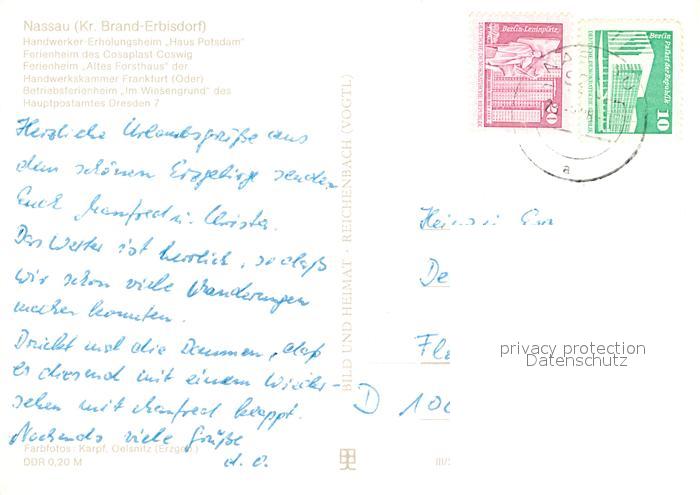 Nassau (Kr. Brand-Erbisdorf)
Handwerker-Erholungsheim „Haus Potsdam"
Ferienheim des Cosaplast Coswig
Ferienheim „Altes Forsthaus" der
Handwerkskammer Frankfurt (Oder)
Betriebsferienheim „Im Wiesengrund" des
Hauptpostamtes Dresden 7
Herzliche Urlaubsgrüße aus
dem schönen Erzgebirge senden
Euch Manfred u. Christa.
Das Wetter ist herrlich, so daß
wir schon viele Wanderungen
machen konnten.
Drückt mal die Daumen, daß
es diesmal mit einem Wieder-
sehen mit Manfred klappt.
Nochmals viele Grüße
d. O.
Farbfotos: Karpf, Oelsnitz (Erzgeb.)
DDR 0,20 M
BILD UND HEIMAT · REICHENBACH (VOGTL)
III/
Berlin-Leninplatz
DEUTSCHE DEMOKRATISCHE REPUBLIK
20
Berlin, Palast der Republik
DEUTSCHE DEMOKRATISCHE REPUBLIK
10
a
De
Fle
D 100
privacy protection
Datenschutz